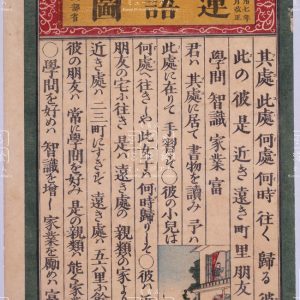 連語圖
治七年
月改正
部省
其處 此處 何處 何時 往く 歸る 彼
此の 彼是 近き 遠き 町 里 朋友
學問 智識 家業 富
君ハ 其處に居て 書物を讀み 予ハ
此處に在りて 手習を ○彼の小兒は
何處へ往きしや 此女子ハ 何時歸りしそ ○彼ハ近
朋友の宅 往き 是ハ 遠き處の 親類の家
近き處ハ 二三町に 遠き處ハ 五六里 餘
彼の朋友ハ 常に學問を好み 是の親類ハ 能く家業
○學問を好めハ 智識を增し 家業を勵めハ 富